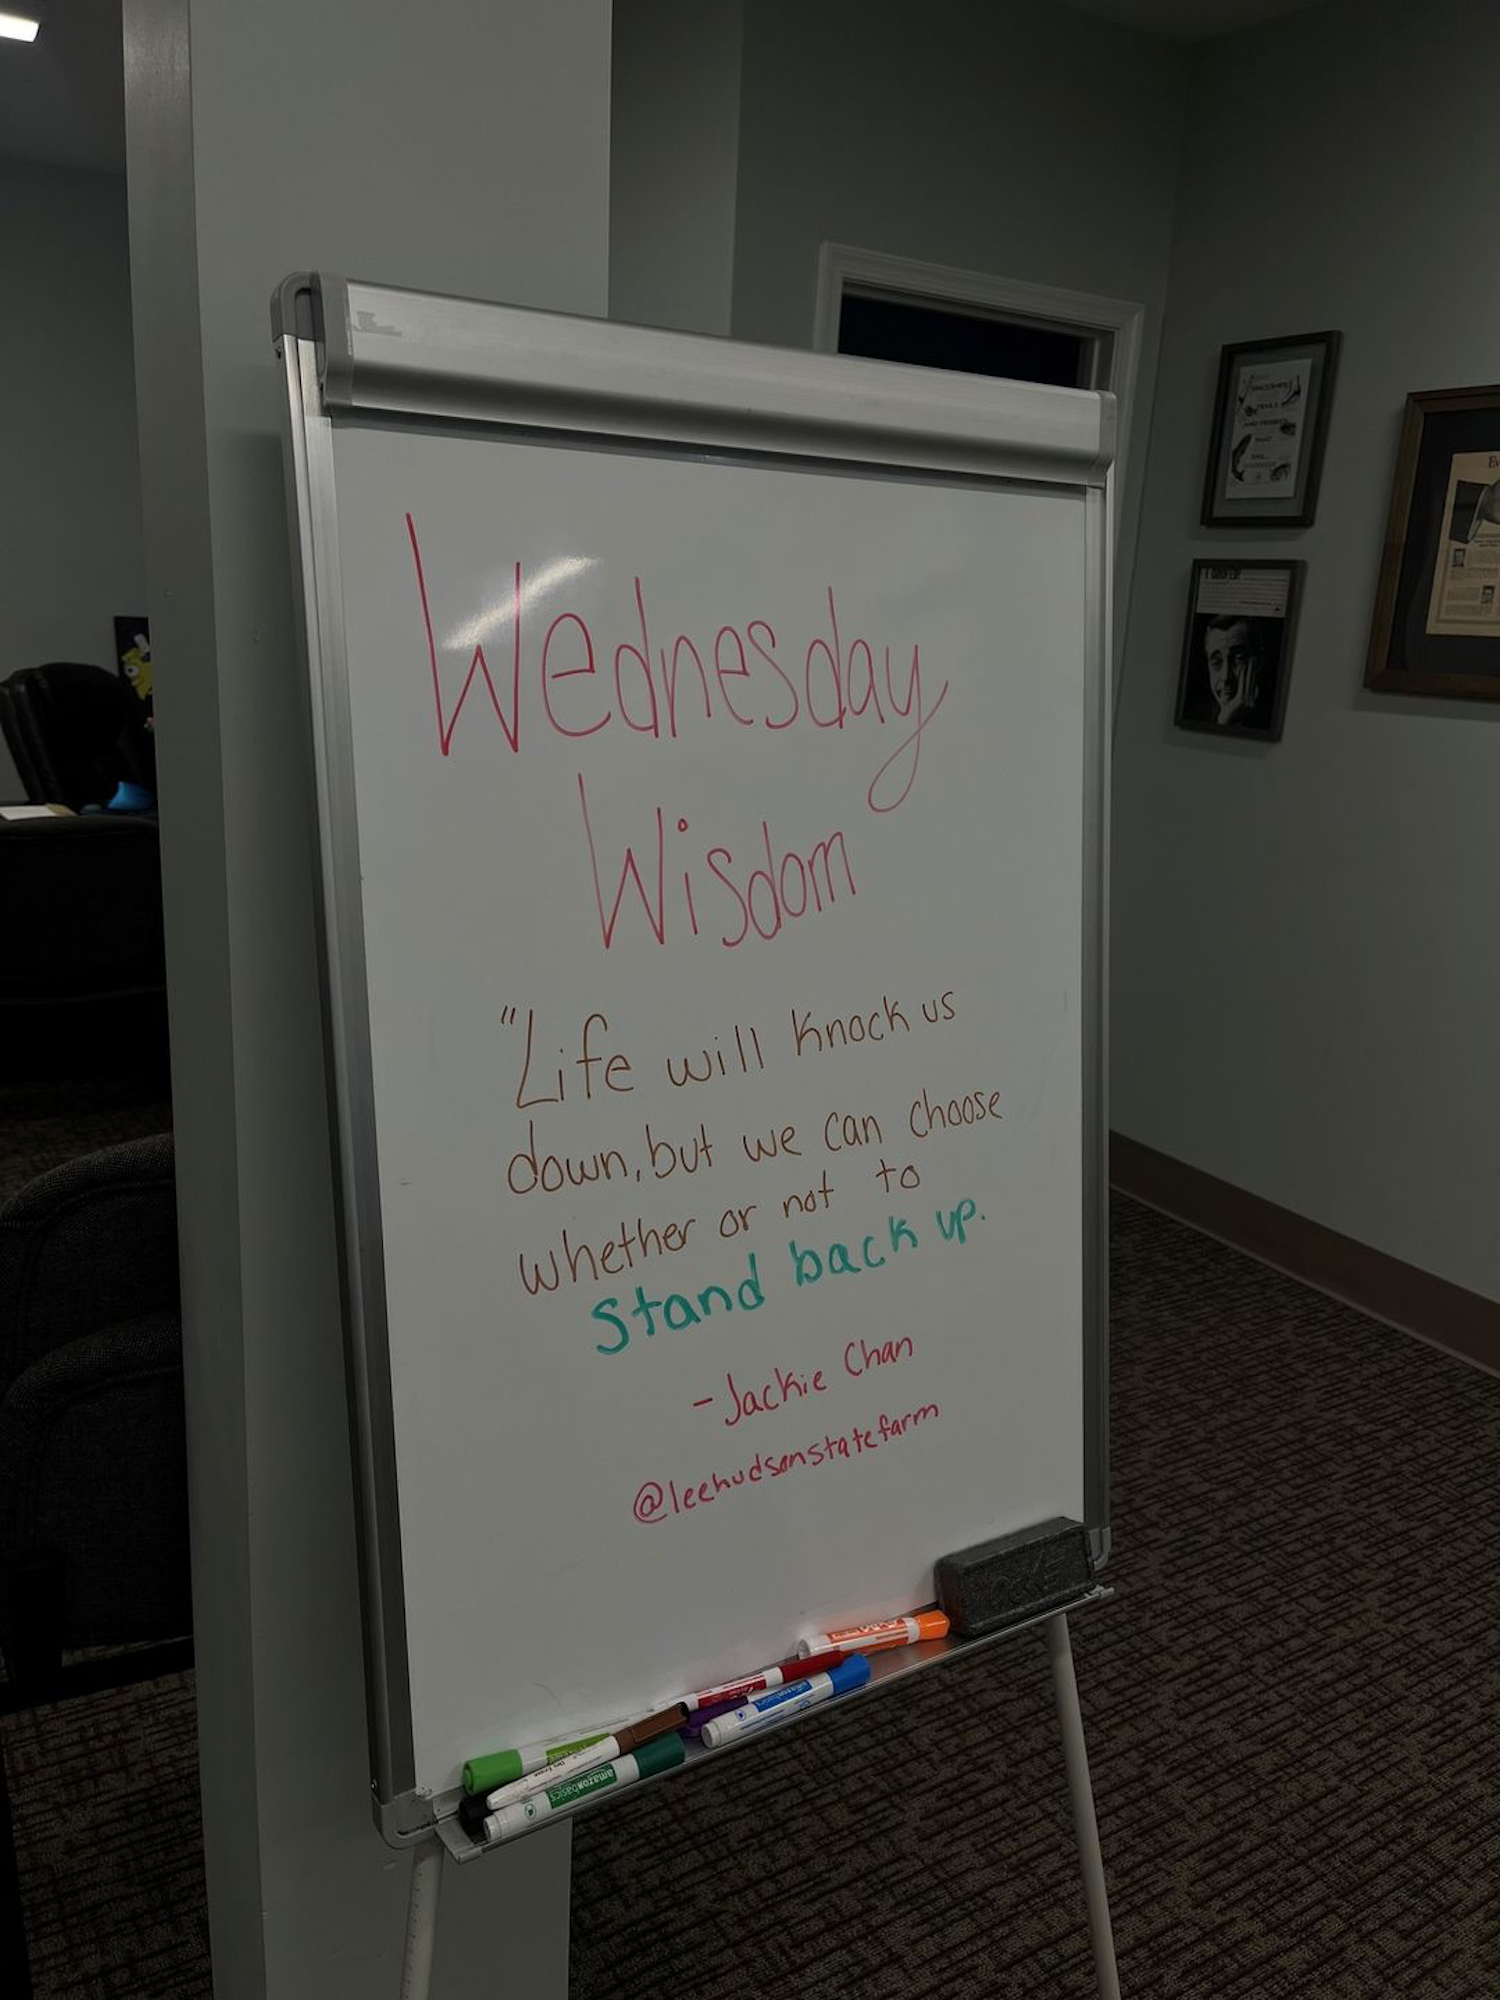 Wednesday
Wisdom
"Life will knock us
down, but we can choose
whether or not to
Stand back up.
- Jackie Chan
@leehudsonstatefarm
amazonbasics